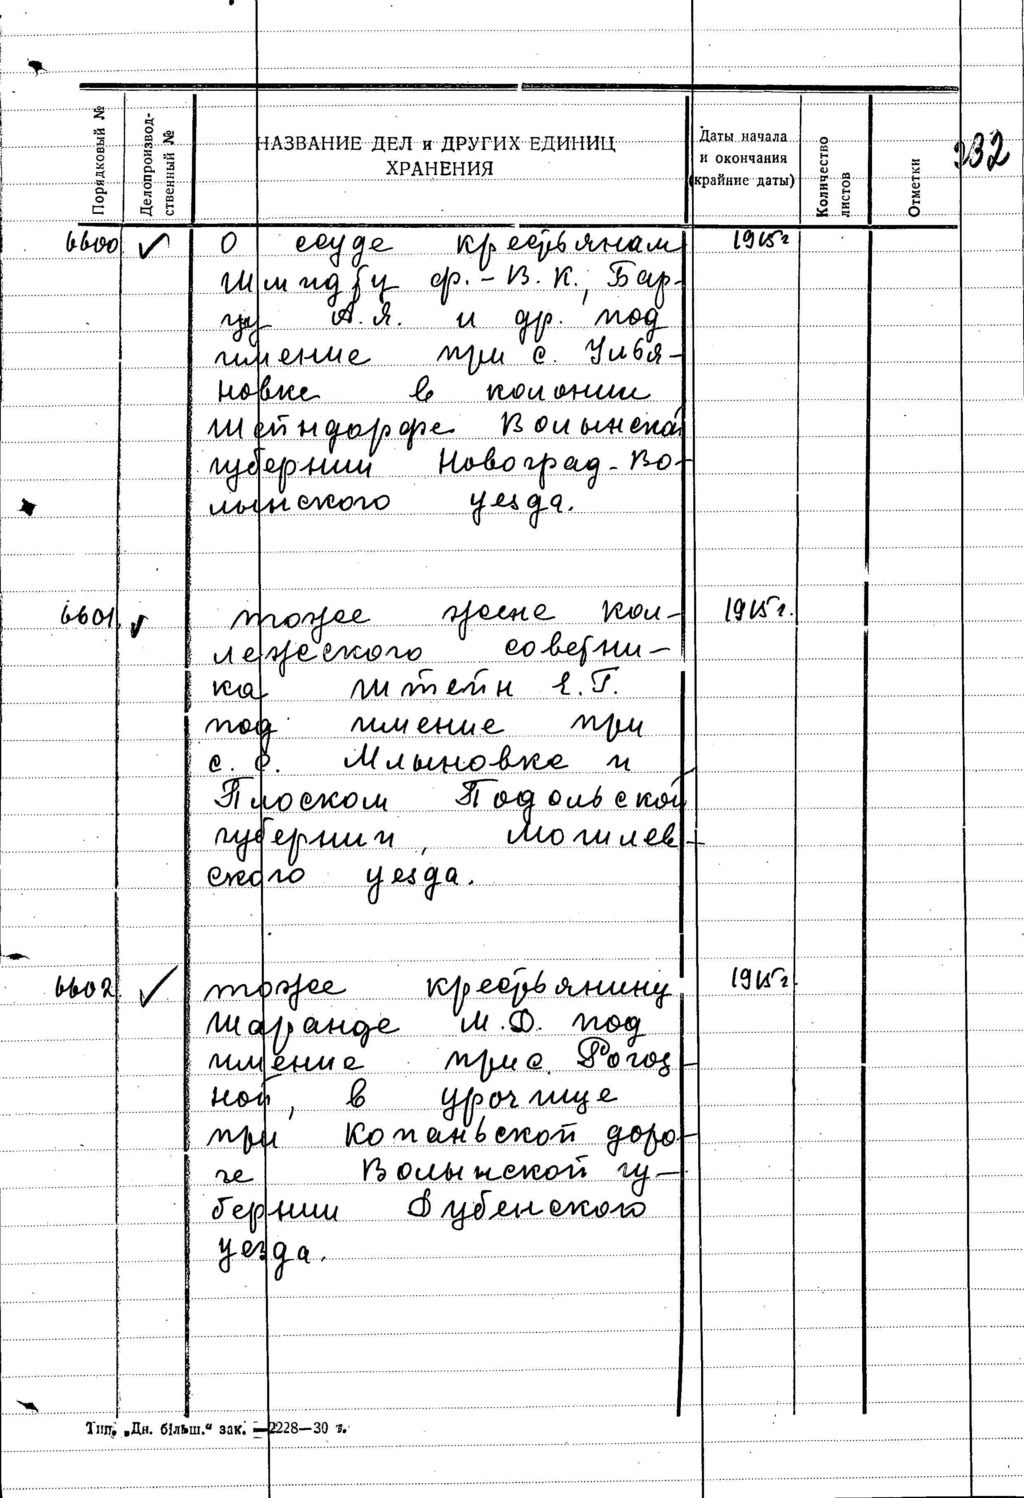 232
Порядковый №
Делопроизвод-
ственный №
НАЗВАНИЕ ДЕЛ и ДРУГИХ ЕДИНИЦ
ХРАНЕНИЯ
Даты начала
и окончания
(крайние даты)
Количество
листов
Отметки
6600 ✓ О ссуде крестьянам 1915г
Шмидту Ф.-В.К., Бар-
цу А.Я. и др. под
имение при с. Улья-
новке в колонии
Штейндорфе Волынской
губернии Новоград-Во-
лынского уезда.
6601 ✓ тоже жене кол- 1915г.
лежского советни-
ка Штейн Е.Г.
под имение при
с.с. Млыновке и
Плоском Подольской
губернии, Могилев-
ского уезда.
6602 ✓ тоже крестьянину 1915г
Шаранде М.Д. под
имение при с. Рогоз
ной, в урочище
при Копаньской доро-
ге Волынской гу-
бернии Дубенского
уезда.
Тип. „Дн. більш." зак. —2228—30 г.